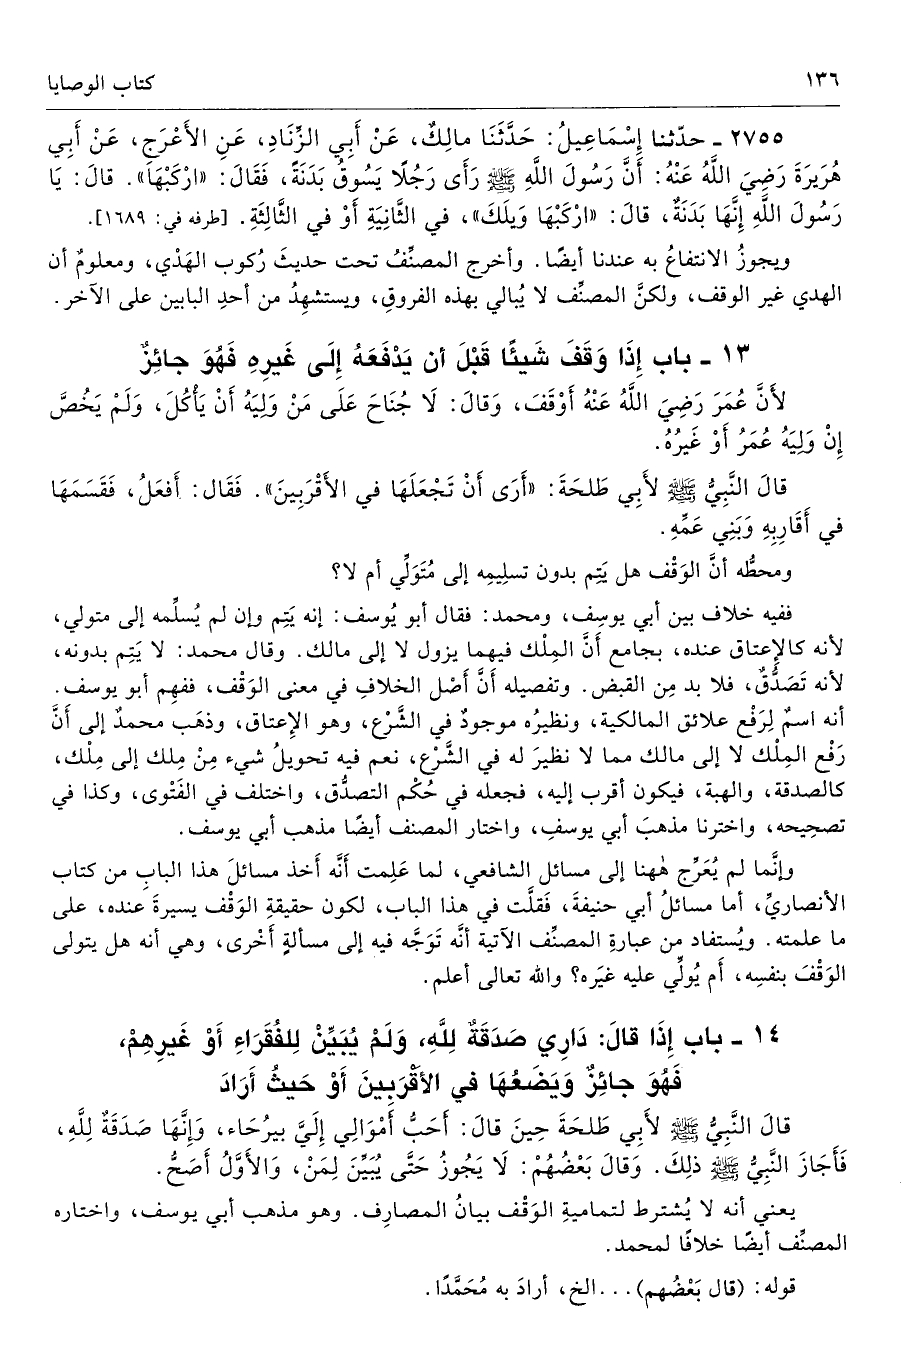 ١٣٦ كتاب الوصايا
٢٧٥٥ ـ حدّثنا إِسْمَاعِيلُ: حَدَّثَنَا مالِكٌ، عَنْ أَبِي الزِّنَادِ، عَنِ الأَعْرَجِ، عَنْ أَبِي
هُرَيرَةَ رَضِيَ اللَّهُ عَنْهُ: أَنَّ رَسُولَ اللَّهِ ﷺ رَأَى رَجُلًا يَسُوقُ بَدَنَةً، فَقَالَ: «ارْكَبْهَا». قالَ: يَا
رَسُولَ اللَّهِ إِنَّهَا بَدَنَةٌ، قالَ: «ارْكَبْهَا وَيلَكَ»، في الثَّانِيَةِ أَوْ في الثَّالِثَةِ. [طرفه في: ١٦٨٩].
ويجوزُ الانتفاعُ به عندنا أيضًا. وأخرج المصنِّفُ تحت حديثَ رُكوب الهَدْي، ومعلومٌ أن
الهدي غير الوقف، ولكنَّ المصنِّف لا يُبالي بهذه الفروقِ، ويستشهِدُ من أحدِ البابين على الآخر.
١٣ ـ باب إِذَا وَقَفَ شَيئًا قَبْلَ أن يَدْفَعَهُ إِلَى غَيرِهِ فَهُوَ جائِزٌ
لأَنَّ عُمَرَ رَضِيَ اللَّهُ عَنْهُ أَوْقَفَ، وَقالَ: لَا جُنَاحَ عَلَى مَنْ وَلِيَهُ أَنْ يَأْكُلَ، وَلَمْ يَخُصَّ
إِنْ وَلِيَهُ عُمَرُ أَوْ غَيرُهُ.
قالَ النَّبِيُّ ﷺ لأَبِي طَلحَةَ: «أَرَى أَنْ تَجْعَلَهَا في الأَقْرَبِينَ». فَقَال: أَفعَلُ، فَقَسَمَهَا
في أَقَارِبِهِ وَبَنِي عَمِّهِ.
ومحطُّه أنَّ الوَقْف هل يَتِم بدون تسلِيمِه إلى مُتَوَلِّي أم لا؟
ففيه خلاف بين أبي يوسِف، ومحمد: فقال أبو يُوسف: إنه يَتِم وإن لم يُسلِّمه إلى متولي،
لأنه كالإِعتاق عنده، بجامع أَنَّ المِلْك فيهما يزول لا إلى مالك. وقال محمد: لا يَتِم بدونه،
لأنه تَصَدُّقٌ، فلا بد مِن القبض. وتفصيله أنَّ أصْل الخلافِ في معنى الوَقْف، ففهم أبو يوسف.
أنه اسمٌ لِرَفْع علائق المالكية، ونظيرُه موجودٌ في الشَّرْع، وهو الإِعتاق، وذهَب محمدٌ إلى أنَّ
رَفْع المِلْك لا إلى مالك مما لا نظيرَ له في الشَّرْع، نعم فيه تحويلُ شيء مِنْ مِلك إلى مِلْك،
كالصدقة، والهبة، فيكون أقرب إليه، فجعله في حُكْم التصدُّق، واختلف في الفَتْوى، وكذا في
تصحيحه، واخترنا مذهبَ أبي يوسفِ، واختار المصنف أيضًا مذهب أبي يوسف.
وإنَّما لم يُعَرِّج هٰهنا إلى مسائل الشافعي، لما عَلِمت أنَّه أخذ مسائلَ هذا البابِ من كتاب
الأنصاريِّ، أما مسائلُ أبي حنيفةَ، فَقلَّت في هذا الباب، لكون حقيقةِ الوَقْف يسيرةً عنده، على
ما علمته. ويُستفاد من عبارةِ المصنِّف الآتية أنَّه تَوَجَّه فيه إلى مسألةٍ أخْرى، وهي أنه هل يتولى
الوَقْفَ بنفسِه، أم يُولِّي عليه غيرَه؟ والله تعالى أعلم.
١٤ ـ باب إِذَا قالَ: دَارِي صَدَقَةٌ لِلَّهِ، وَلَمْ يُبَيِّنْ لِلفُقَرَاءِ أَوْ غَيرِهِمْ،
فَهُوَ جائِزٌ وَيَضَعُهَا في الأَقْرَبِينَ أَوْ حَيثُ أَرَادَ
قالَ النَّبِيُّ ﷺ لأَبِي طَلحَةَ حِينَ قالَ: أَحَبُّ أَمْوَالِي إِلَيَّ بيرُحَاء، وَإِنَّهَا صَدَقَةٌ لِلَّهِ،
فَأَجَازَ النَّبِيُّ ﷺ ذلِكَ. وَقالَ بَعْضُهُمْ: لَا يَجُوزُ حَتَّى يُبَيِّنَ لِمَنْ، وَالأَوَّلُ أَصَحُّ.
يعني أنه لا يُشترط لتماميةِ الوَقْف بيانُ المصارِف. وهو مذهب أبي يوسف، واختاره
المصنِّف أيضًا خلافًا لمحمد.
قوله: (قال بَعْضُهم)...الخ، أرادَ به مُحَمَّدًا.